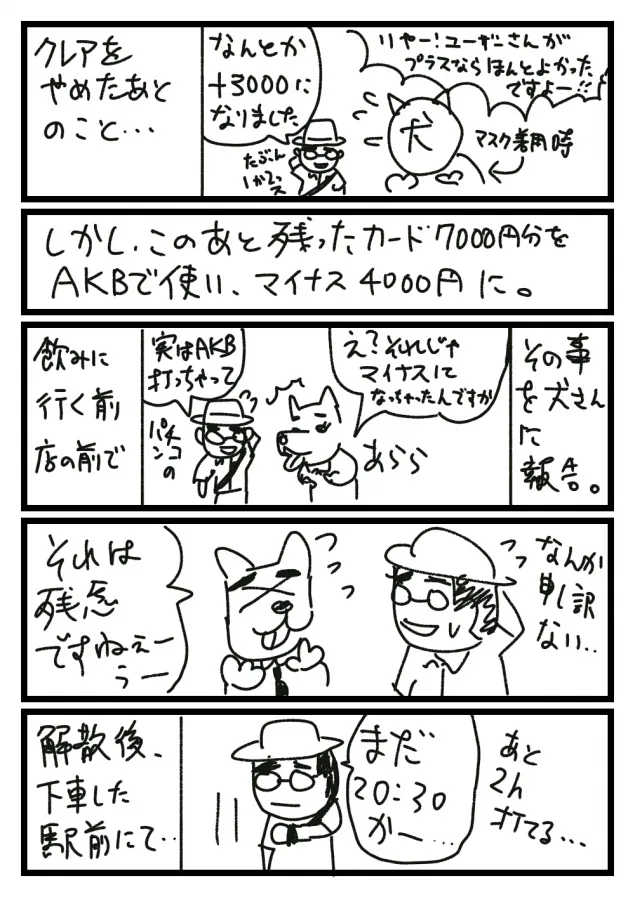 クレアを
やめたあと
のこと・・・
なんとか
+3000に
なりました
たぶん
リャー!ユーザーさんが
プラスならほんとよかった
ですよー!!
犬
マスク着用時
しかし、このあと残ったカード7000円分を
AKBで使い、マイナス4000円に。
その事
を犬さん
に
報告。
え?それじゃ
マイナスに
なっちゃったんですか
あらら
実はAKB
打っちゃって
パチ
ンコの
飲みに
行く前
店の前で
なんか
申し訳
ない・・
それは
残念
ですねぇー
ぅー
解散後、
下車した
駅前にて・・
まだ
20:30
かー・・・
あと
2h
打てる・・・